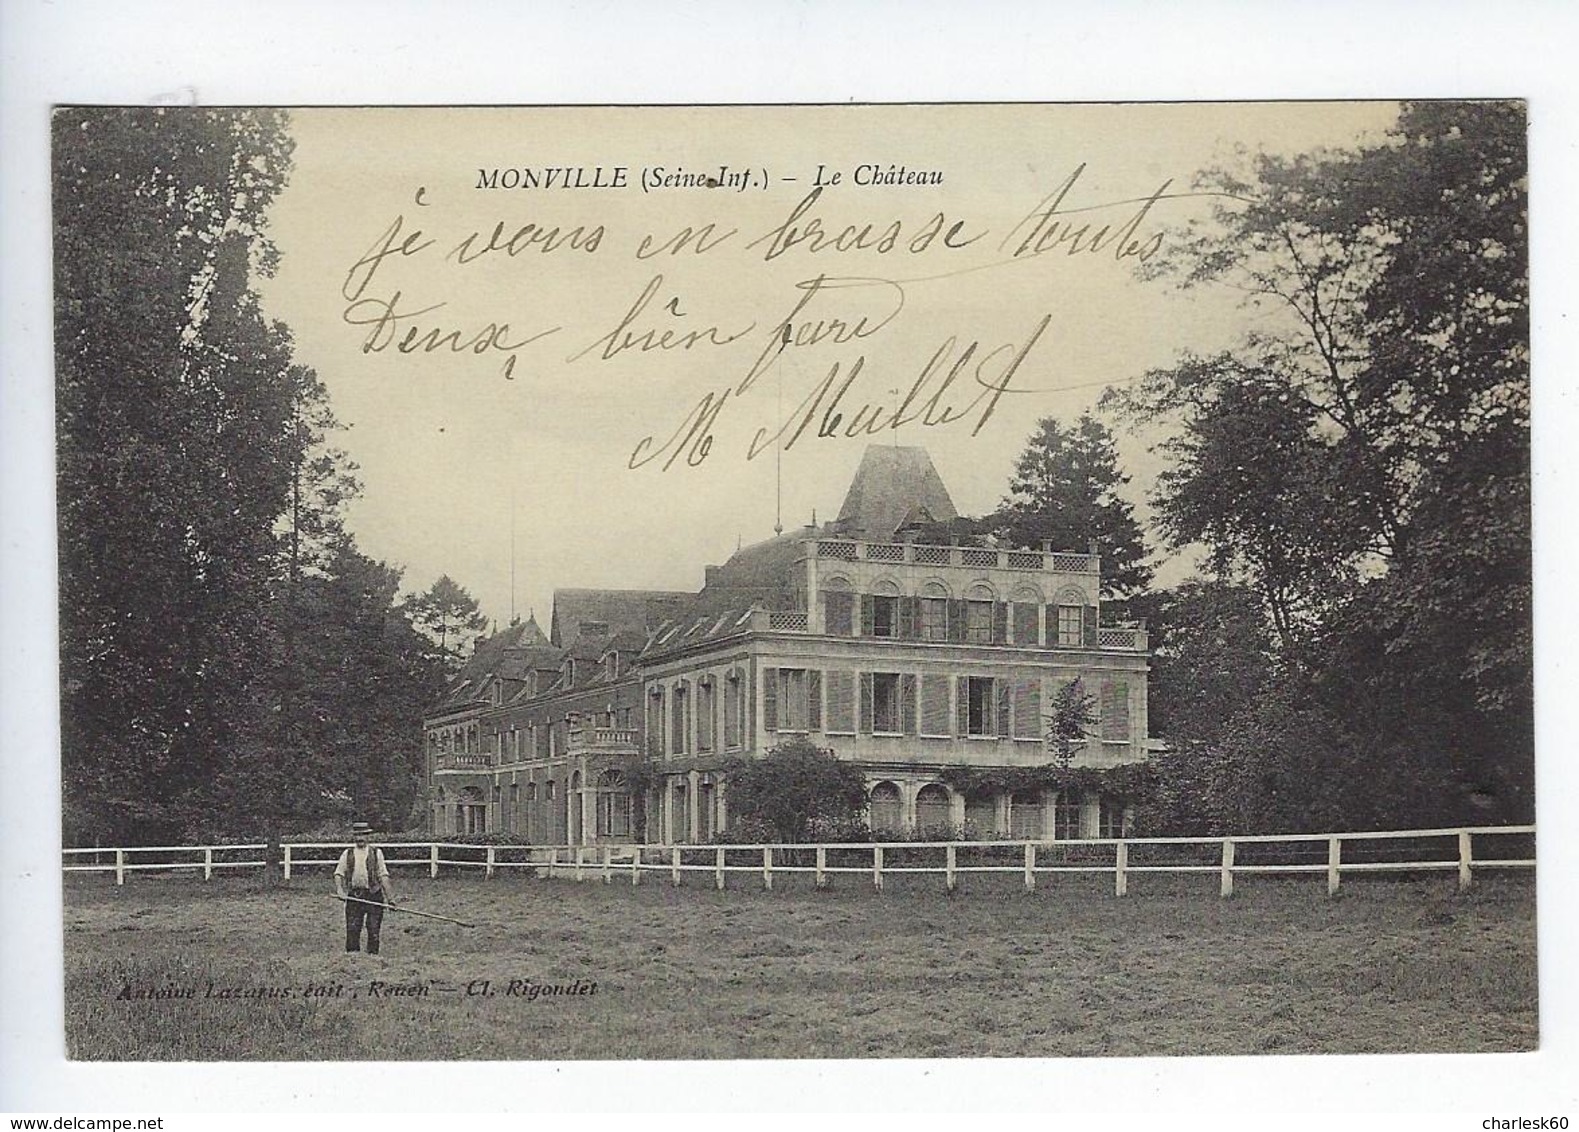 MONVILLE (Seine-Inf.) – Le Château
je vous en brasse touts
Deux bien fort
M Mallet
Antoine Lazarus, édit., Rouen – Cl. Rigondet
www.delcampe.net
charlesk60